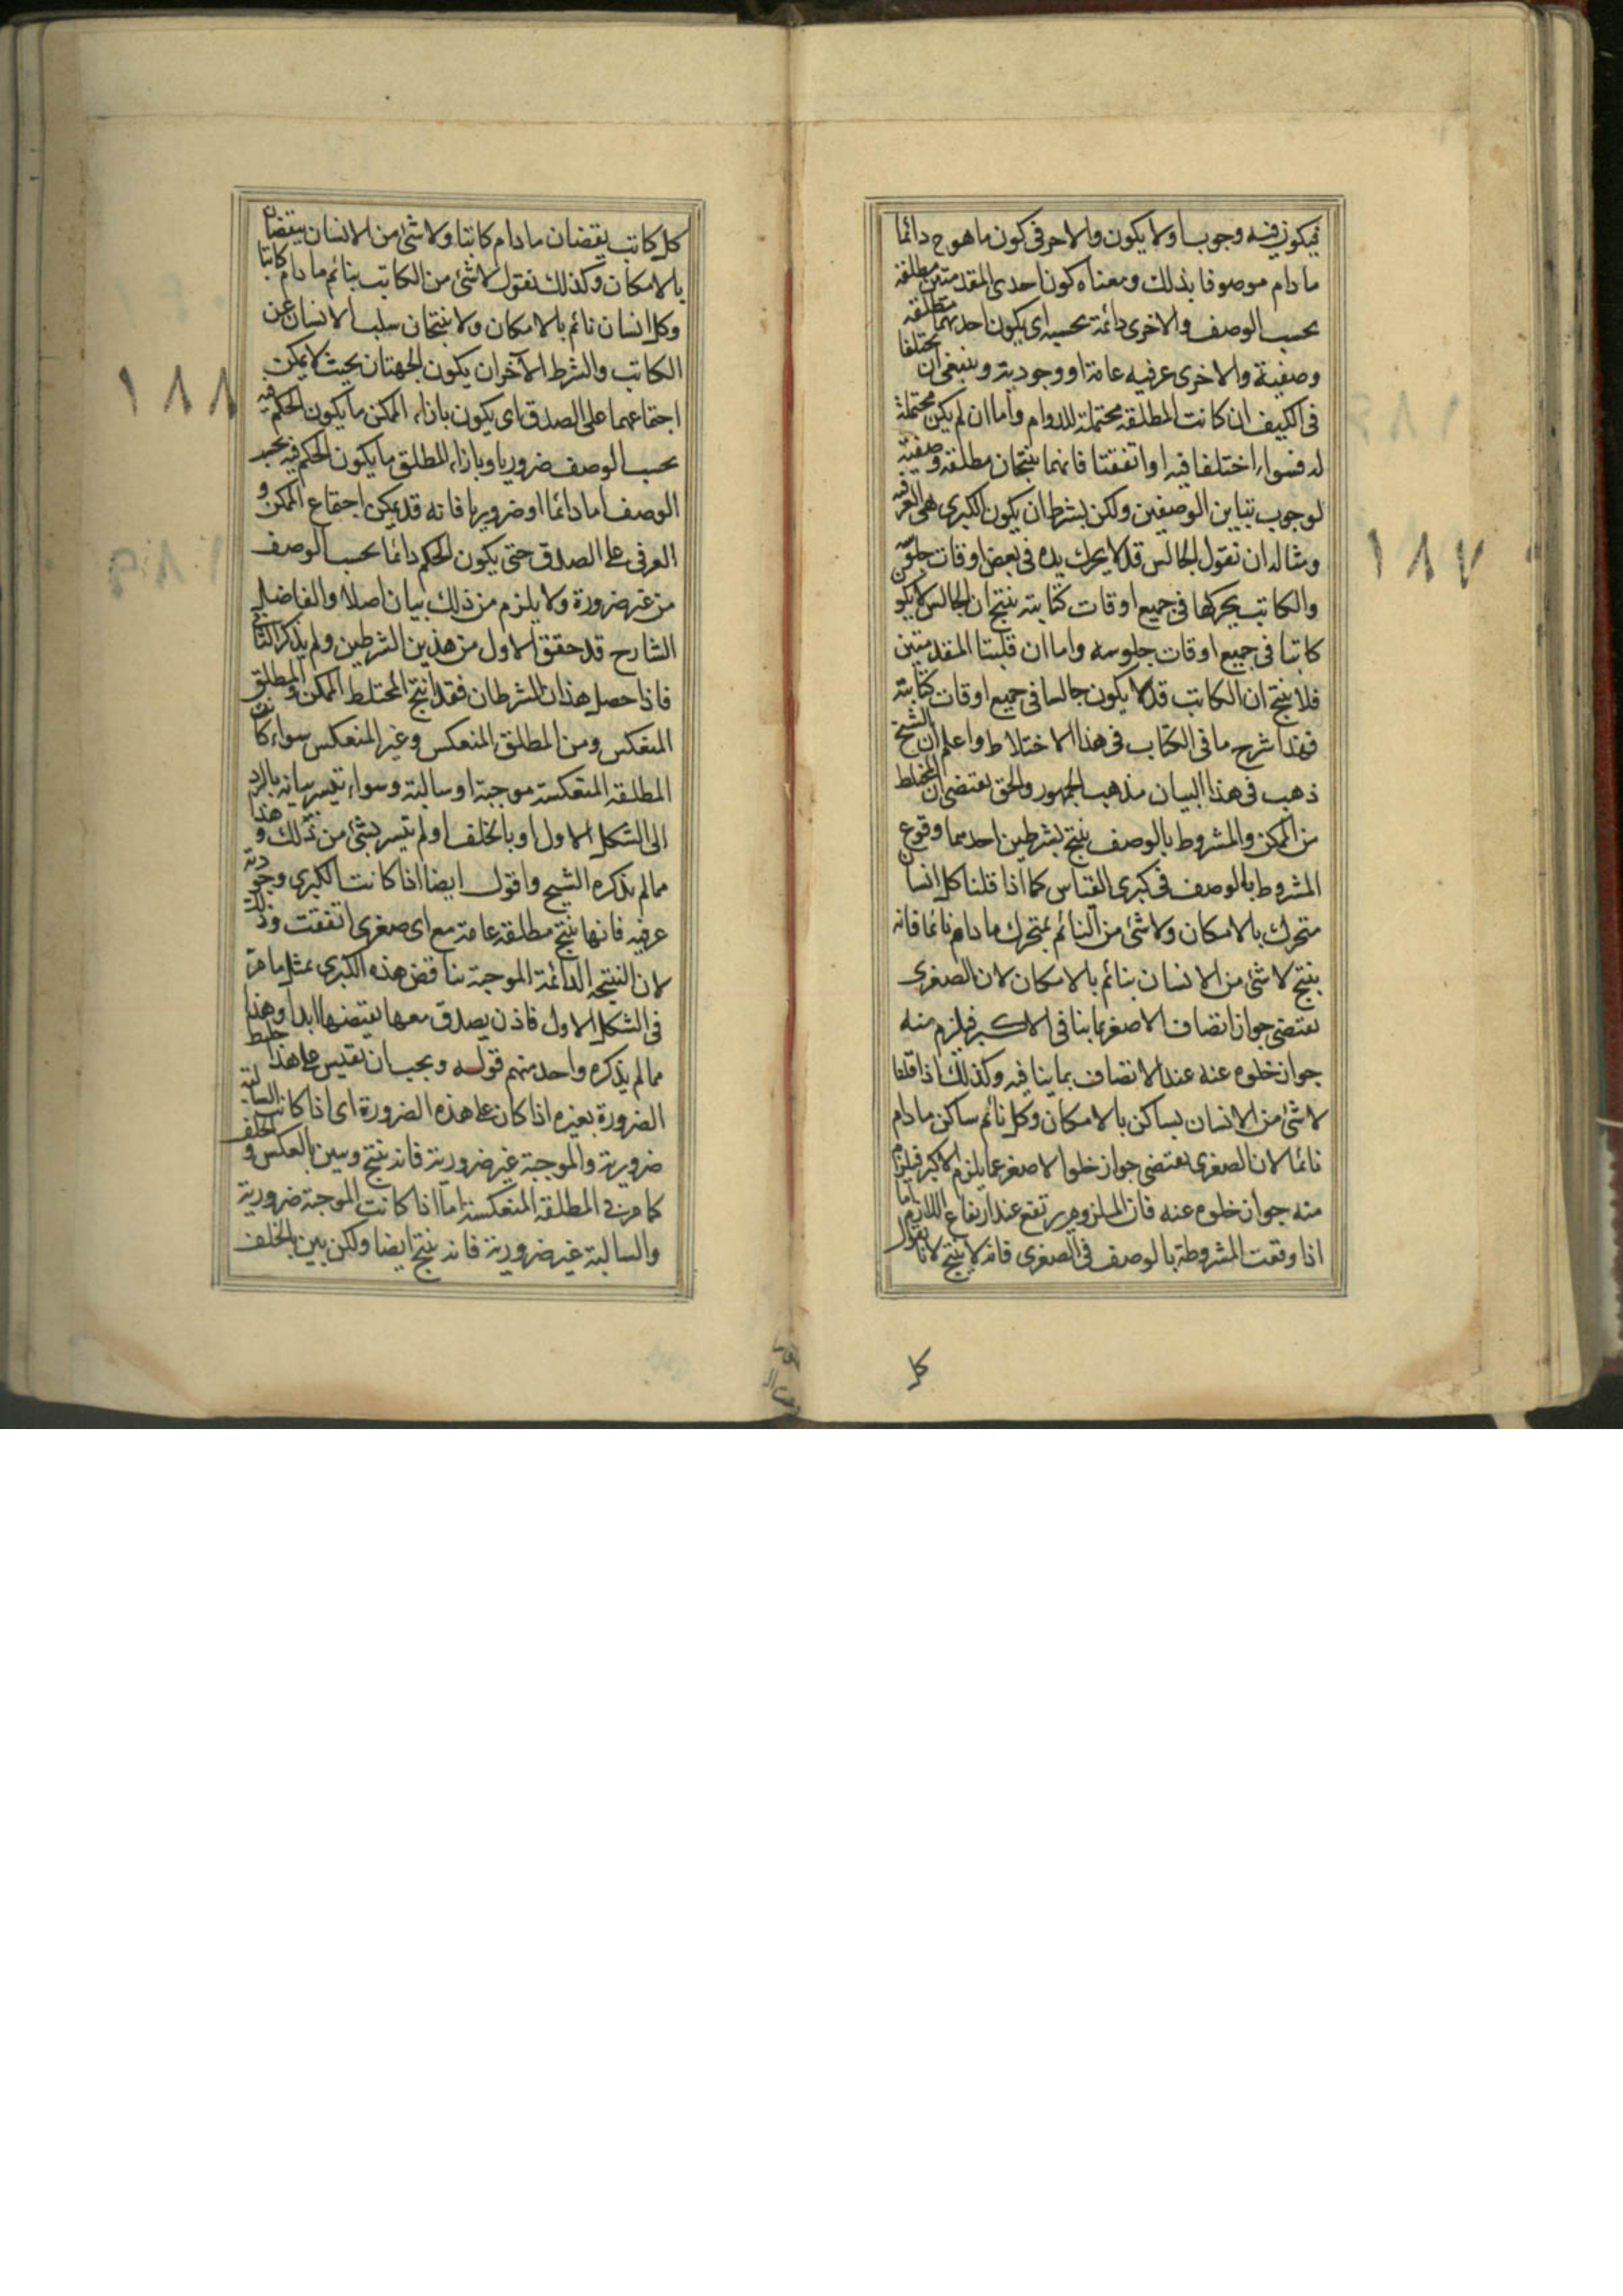 فيكون فيه وجوبا ولا يكون والاخر في كون ما هو ج دائما
ما دام موصوفا بذلك ومعناه كون احدى المقدمتين مطلقة
بحسب الوصف والاخرى دائمة بحسبه اى يكون احديهما مطلقه
وصفية والاخرى عرفيه عامة او وجودية وينبغى ان يختلفا
فى الكيف ان كانت المطلقه محتملة للدوام واما ان لم يكن محتملة
له فسواء اختلفا فيه او اتفقتا فانهما ينتجان مطلقه وصفية
لوجوب تباين الوصفين ولكن بشرط ان يكون الكبرى هى العرفيه
ومثاله ان نقول الجالس قد لا يحرك يده فى بعض اوقات جلوسه
والكاتب يحركها فى جميع اوقات كتابته ينتج ان الجالس لا يكون
كاتبا فى جميع اوقات جلوسه واما ان قلبتا المقدمتين
فلا ينتج ان الكاتب قد لا يكون جالسا فى جميع اوقات كتابته
فهذا شرح ما فى الكتاب فى هذا الاختلاط واعلم ان الشيخ
ذهب فى هذا البيان مذهب الجمهور والحق يقتضى ان المختلط
من الممكن والمشروط بالوصف ينتج بشرطين احدهما وقوع
المشروط بالوصف فى كبرى القياس كما اذا قلنا كل انسان
متحرك بالامكان ولا شئ من النائم بمتحرك ما دام نائما فانه
ينتج لا شئ من الانسان بنائم بالامكان لان الصغرى
يقتضى جواز اتصاف الاصغر بما ينافى الاكبر فيلزم منه
جواز خلوه عنه عند الاتصاف بما ينافيه وكذلك اذا قلنا
لا شئ من الانسان بساكن بالامكان وكل نائم ساكن ما دام
نائما لان الصغرى يقتضى جواز خلوا الاصغر عما يلزم الاكبر فيلزم
منه جواز خلوه عنه فان الملزوم يرتفع عند ارتفاع اللازم اما
اذا وقعت المشروطة بالوصف فى الصغرى فانه لا ينتج لانا نقول
كل
١٨٧
كل كاتب يقضان ما دام كاتبا ولا شئ من الانسان بيقضان
بالامكان وكذلك نقول لا شئ من الكاتب بنائم ما دام كاتبا
وكل انسان نائم بالامكان ولا ينتجان سلب الانسان عن
الكاتب والشرط الآخر ان يكون الجهتان بحيث لا يمكن
اجتماعهما على الصدق اى يكون بازاء الممكن ما يكون الحكم فيه
بحسب الوصف ضروريا وبازاء المطلق ما يكون الحكم فيه بحسب
الوصف اما دائما او ضروريا فانه قد يمكن اجتماع الممكن و
العرفى على الصدق حتى يكون الحكم دائما بحسب الوصف
من غير ضرورة ولا يلزم من ذلك بيان اصلا والفاضل
الشارح قد حقق الاول من هذين الشرطين ولم يذكر الثانى
فاذا حصل هذان الشرطان فقد انتج المختلط الممكن والمطلق
المنعكس ومن المطلق المنعكس وغير المنعكس سواء كانت
المطلقه المنعكسة موجبة او سالبة وسواء تيسر بيانه بالرد
الى الشكل الاول او بالخلف او لم تيسر بشئ من ذلك وهذا
مما لم يذكره الشيخ واقول ايضا اذا كانت الكبرى وجودية
عرفيه فانها ينتج مطلقه عامة مع اى صغرى اتفقت وذلك
لان النتيجه الدائمة الموجبة يناقض هذه الكبرى بمثل ما مر
فى الشكل الاول فاذن يصدق معها نقيضها ابدا وهذا
مما لم يذكره واحد منهم قوله ويجب ان تقيس على هذا خلط
الضرورة بغيره اذا كان على هذه الضرورة اى اذا كانت السالبة
ضرورية والموجبة غير ضرورية فانه ينتج وبين بالعكس والخلف
كما مر فى المطلقه المنعكسة اما اذا كانت الموجبة ضرورية
والسالبة غير ضرورية فانه ينتج ايضا ولكن بين بالخلف
١٨٨